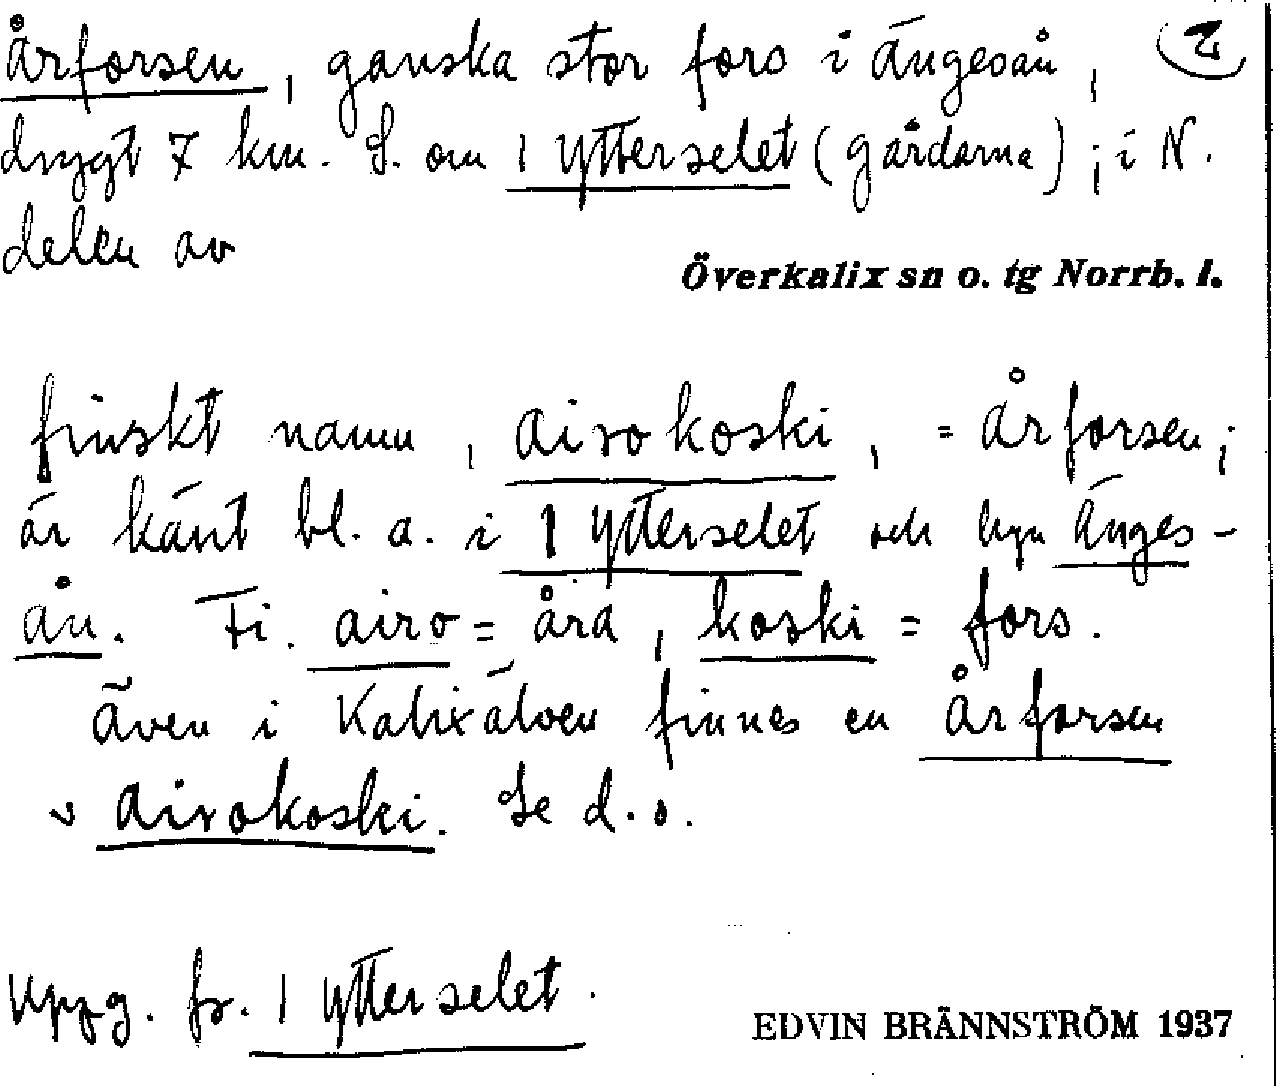 Årforsen, ganska stor fors i Ängesån, 2
drygt 7 km. S. om 1 Ytterselet (gårdarna); i N.
delen av
Överkalix sn o. tg Norrb. l.
finskt namn, airokoski, = Årforsen;
är känt bl. a. i 1 Ytterselet och byn Änges-
ån. Fi. airo = åra, koski = fors.
Även i Kalixälven finnes en Årforsen
airokoski. Se d.o.
Uppg. fr. 1 Ytterselet.
EDVIN BRÄNNSTRÖM 1937